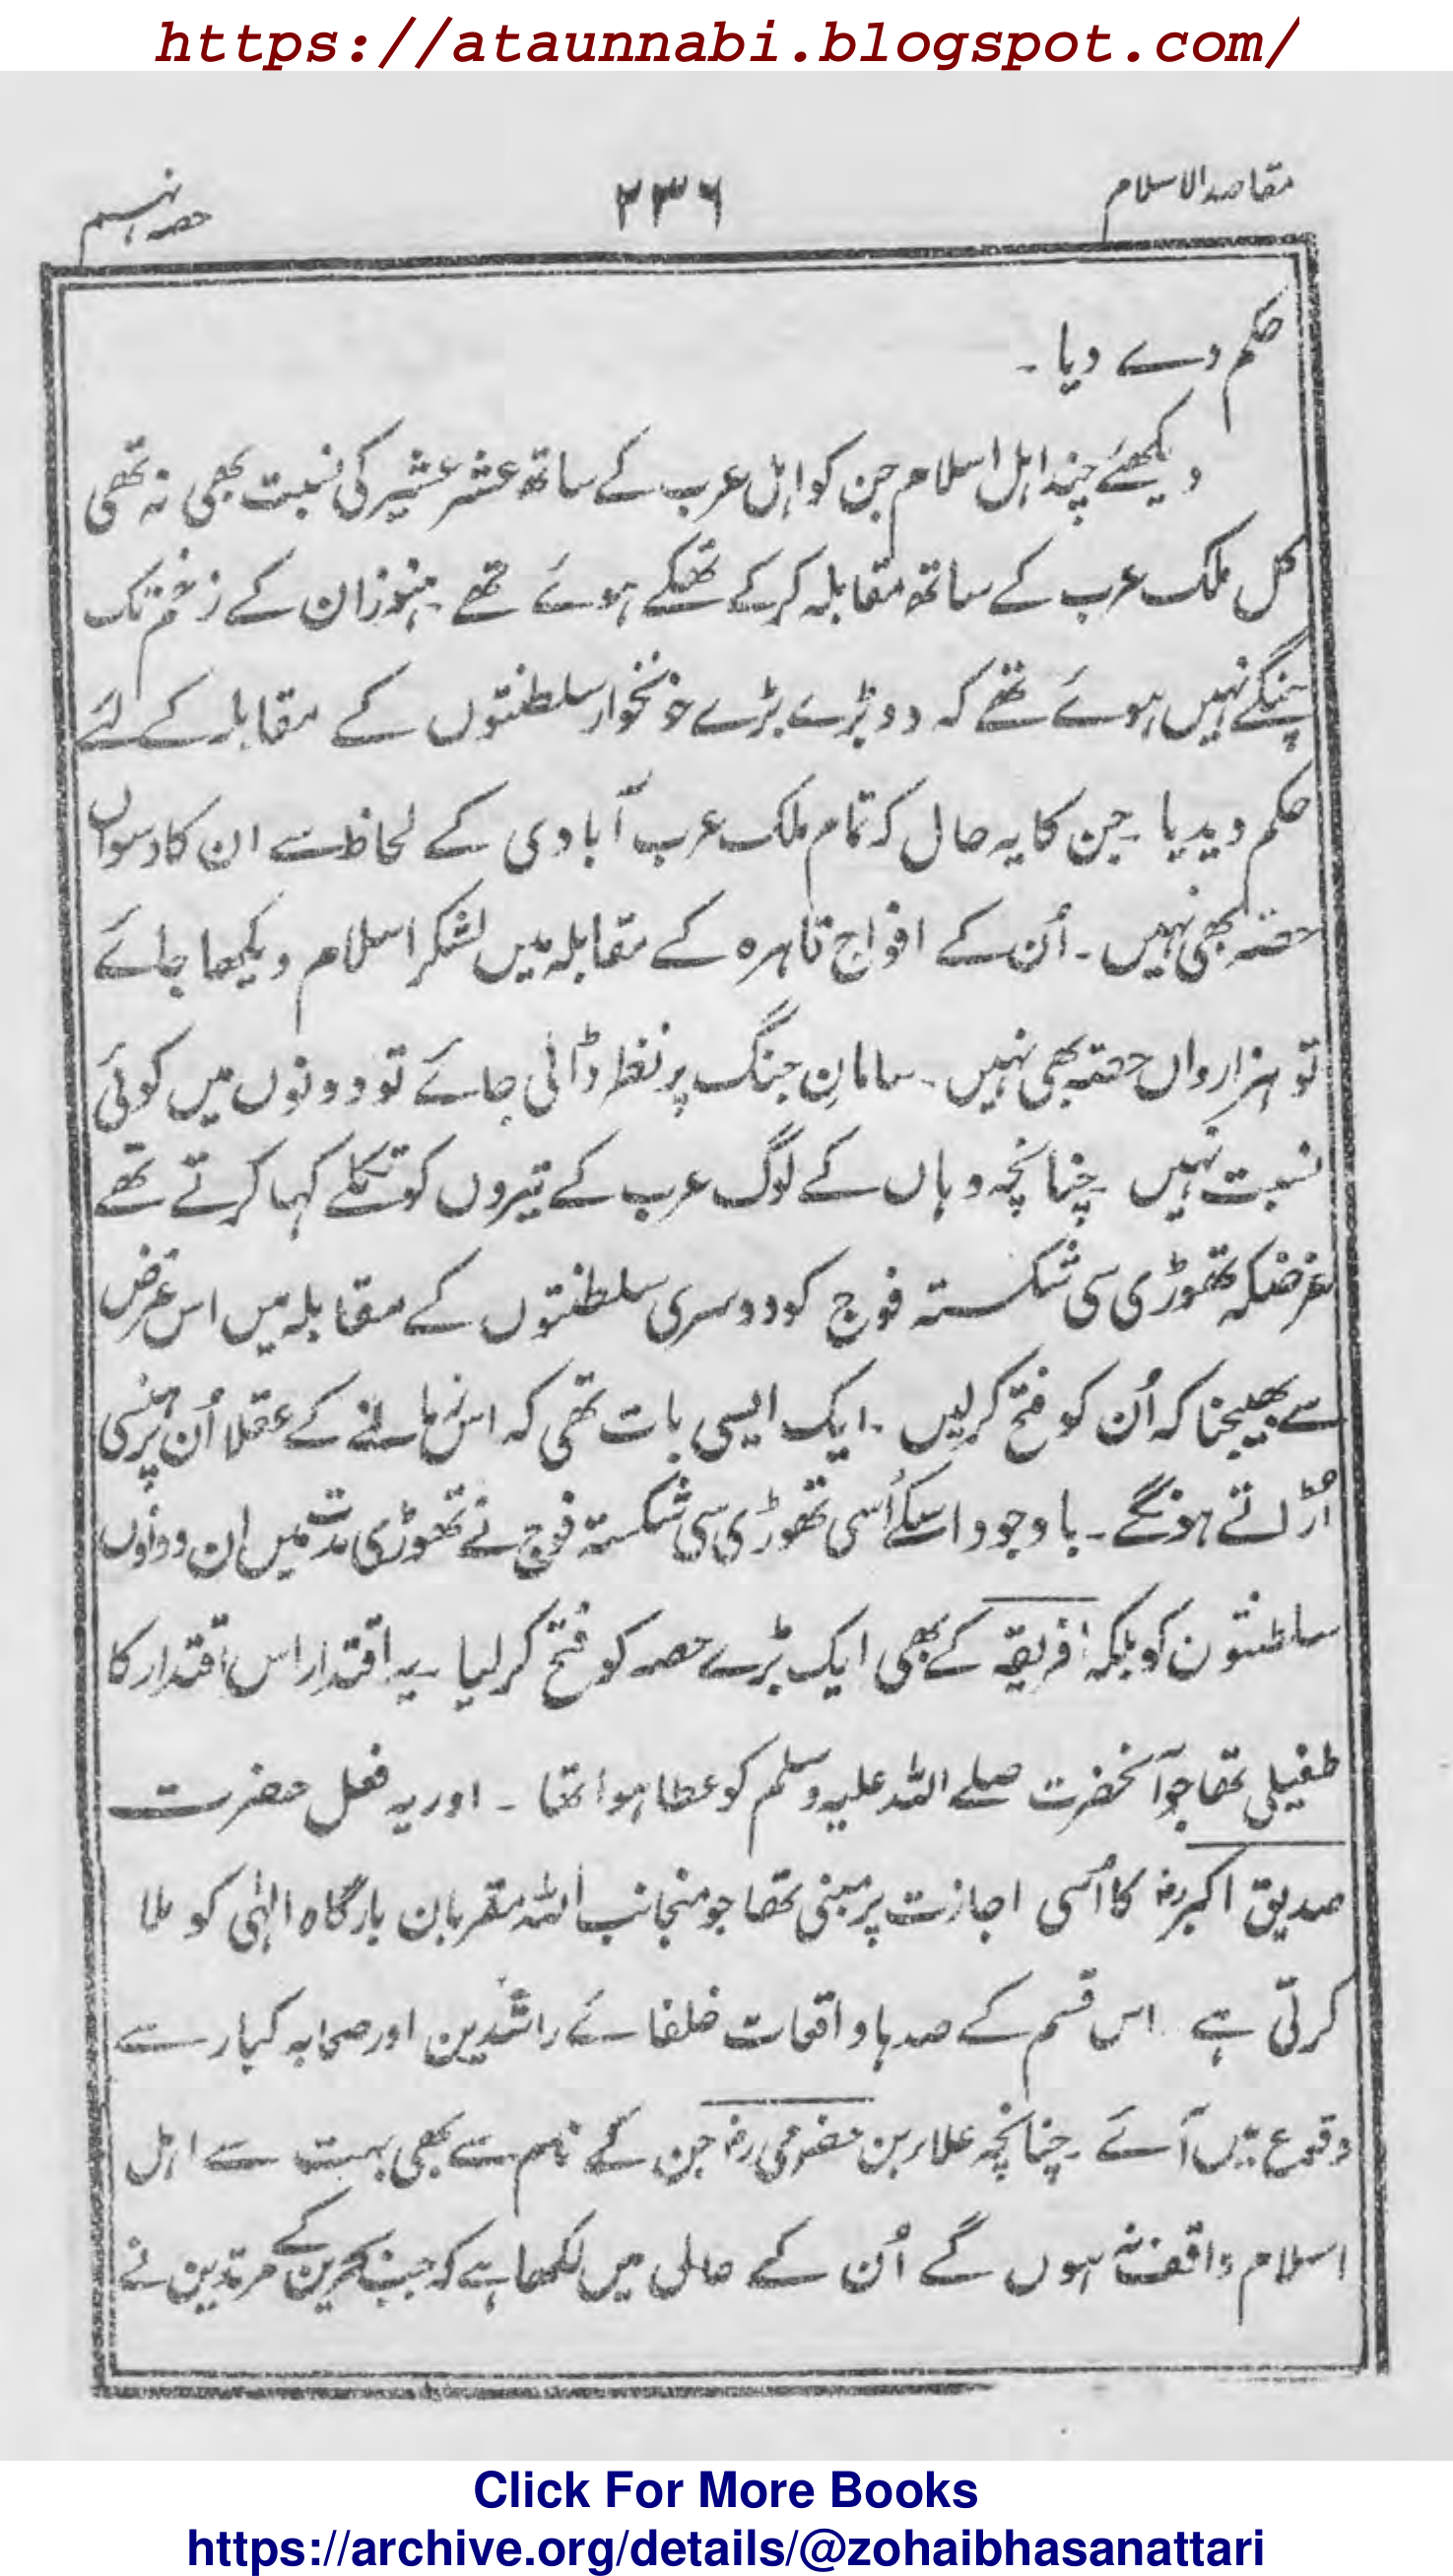 https://ataunnabi.blogspot.com/
مقاصد الاسلام ۲۳۶ حصہ نہم
حکم دے دیا ۔
دیکھئے چند اہل اسلام جن کو اہل عرب کے ساتھ عشر عشیر کی نسبت بھی نہ تھی
کل ملک عرب کے ساتھ مقابلہ کرکے تھکے ہوئے تھے ۔ ہنوز ان کے زخم تک
چنگے نہیں ہوئے تھے کہ دو بڑے بڑے خونخوار سلطنتوں کے مقابلہ کے لئے
حکم دیدیا ۔ جن کا یہ حال کہ تمام ملک عرب آبادی کے لحاظ سے ان کا دسواں
حصہ بھی نہیں ۔ اُن کے افواج قاہرہ کے مقابلہ میں لشکر اسلام دیکھا جائے
تو ہزارواں حصہ بھی نہیں ۔ سامانِ جنگ پر نظر ڈالی جائے تو دونوں میں کوئی
نسبت نہیں ۔ چنانچہ وہاں کے لوگ عرب کے تیروں کو تکلے کہا کرتے تھے
غرضکہ تھوڑی سی شکستہ فوج کو دوسری سلطنتوں کے مقابلہ میں اس غرض
سے بھیجنا کہ اُن کو فتح کرلیں ۔ ایک ایسی بات تھی کہ اس زمانے کے عقلا اُن پر ہنسی
اُڑاتے ہونگے ۔ باوجود اسکے اُسی تھوڑی سی شکستہ فوج نے تھوڑی مدت میں ان دونوں
سلطنتون کو بلکہ افریقہ کے بھی ایک بڑے حصہ کو فتح کرلیا ۔ یہ اقتدار اس اقتدار کا
طفیلی تھا جو آنحضرت صلے اللہ علیہ وسلم کو عطا ہوا تھا ۔ اور یہ فعل حضرت
صدیق اکبر رض کا اُسی اجازت پر مبنی تھا جو منجانب اللہ مقربان بارگاہ الہٰی کو ملا
کرتی ہے ۔ اس قسم کے صدہا واقعات خلفائے راشدین اور صحابہ کبار سے
وقوع میں آئے ۔ چنانچہ علاء بن حضرمی رض جن کے نام سے بھی بہت سے اہل
اسلام واقف نہ ہوں گے اُن کے حال میں لکھا ہے کہ جب بحرین کے مرتدین نے
Click For More Books
https://archive.org/details/@zohaibhasanattari